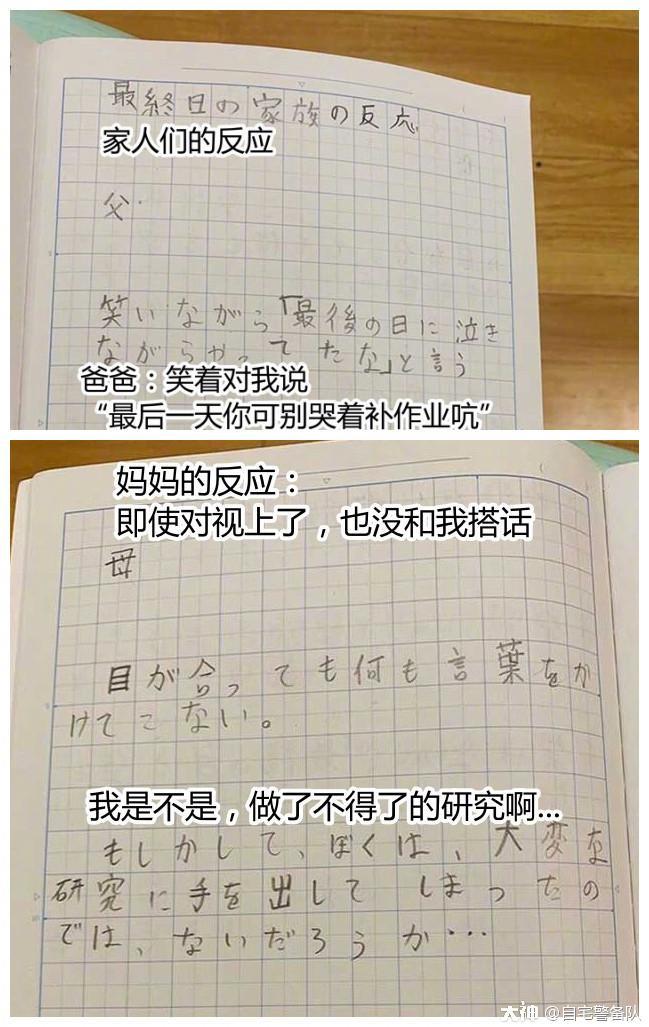 最終日の家族の反応
家人们的反应
父
笑いながら「最後の日に泣き
ながらやってたな」と言う
爸爸：笑着对我说
“最后一天你可别哭着补作业吭”
妈妈的反应：
即使对视上了，也没和我搭话
母
目が合っても何も言葉をか
けてこない。
我是不是，做了不得了的研究啊...
もしかして、ぼくは、大変な
研究に手を出してしまったの
では、ないだろうか…
大神 @自宅警备队